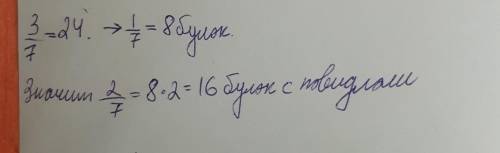 3/7 = 24. → 1/7 = 8 булок.
Значит 2/7 = 8 · 2 = 16 булок с повидлами